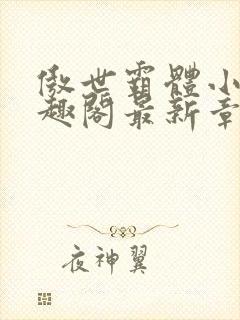 傲世霸體小
趣閣最新章
夜神翼